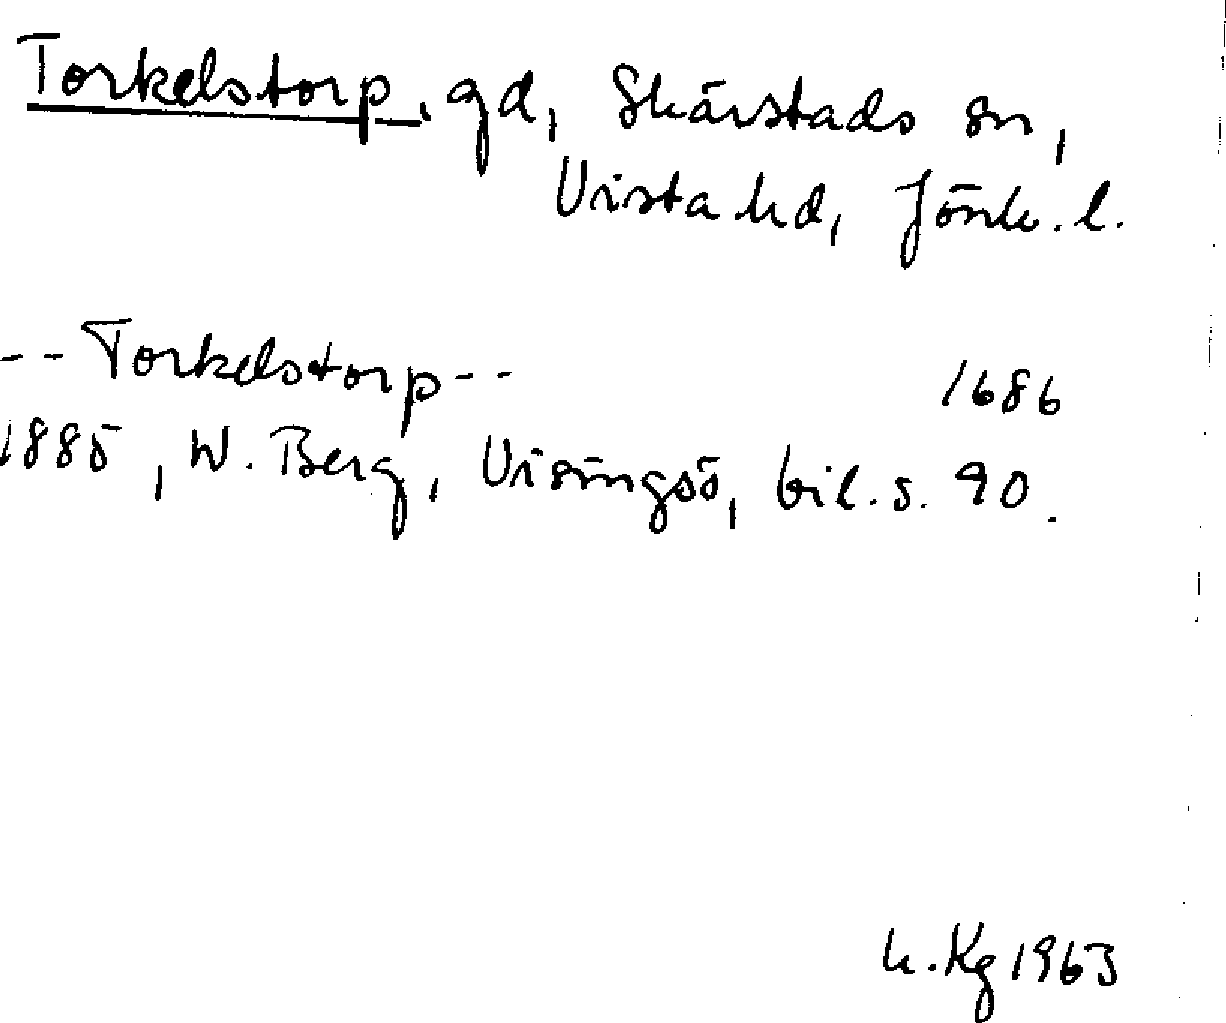 Torkelstorp, gd, Skärstads sn,
Vista hd, Jönk. l.
-- Torkelstorp -- 1686
1885, W. Berg, Visingsö, bil. s. 90.
h. Kg 1963